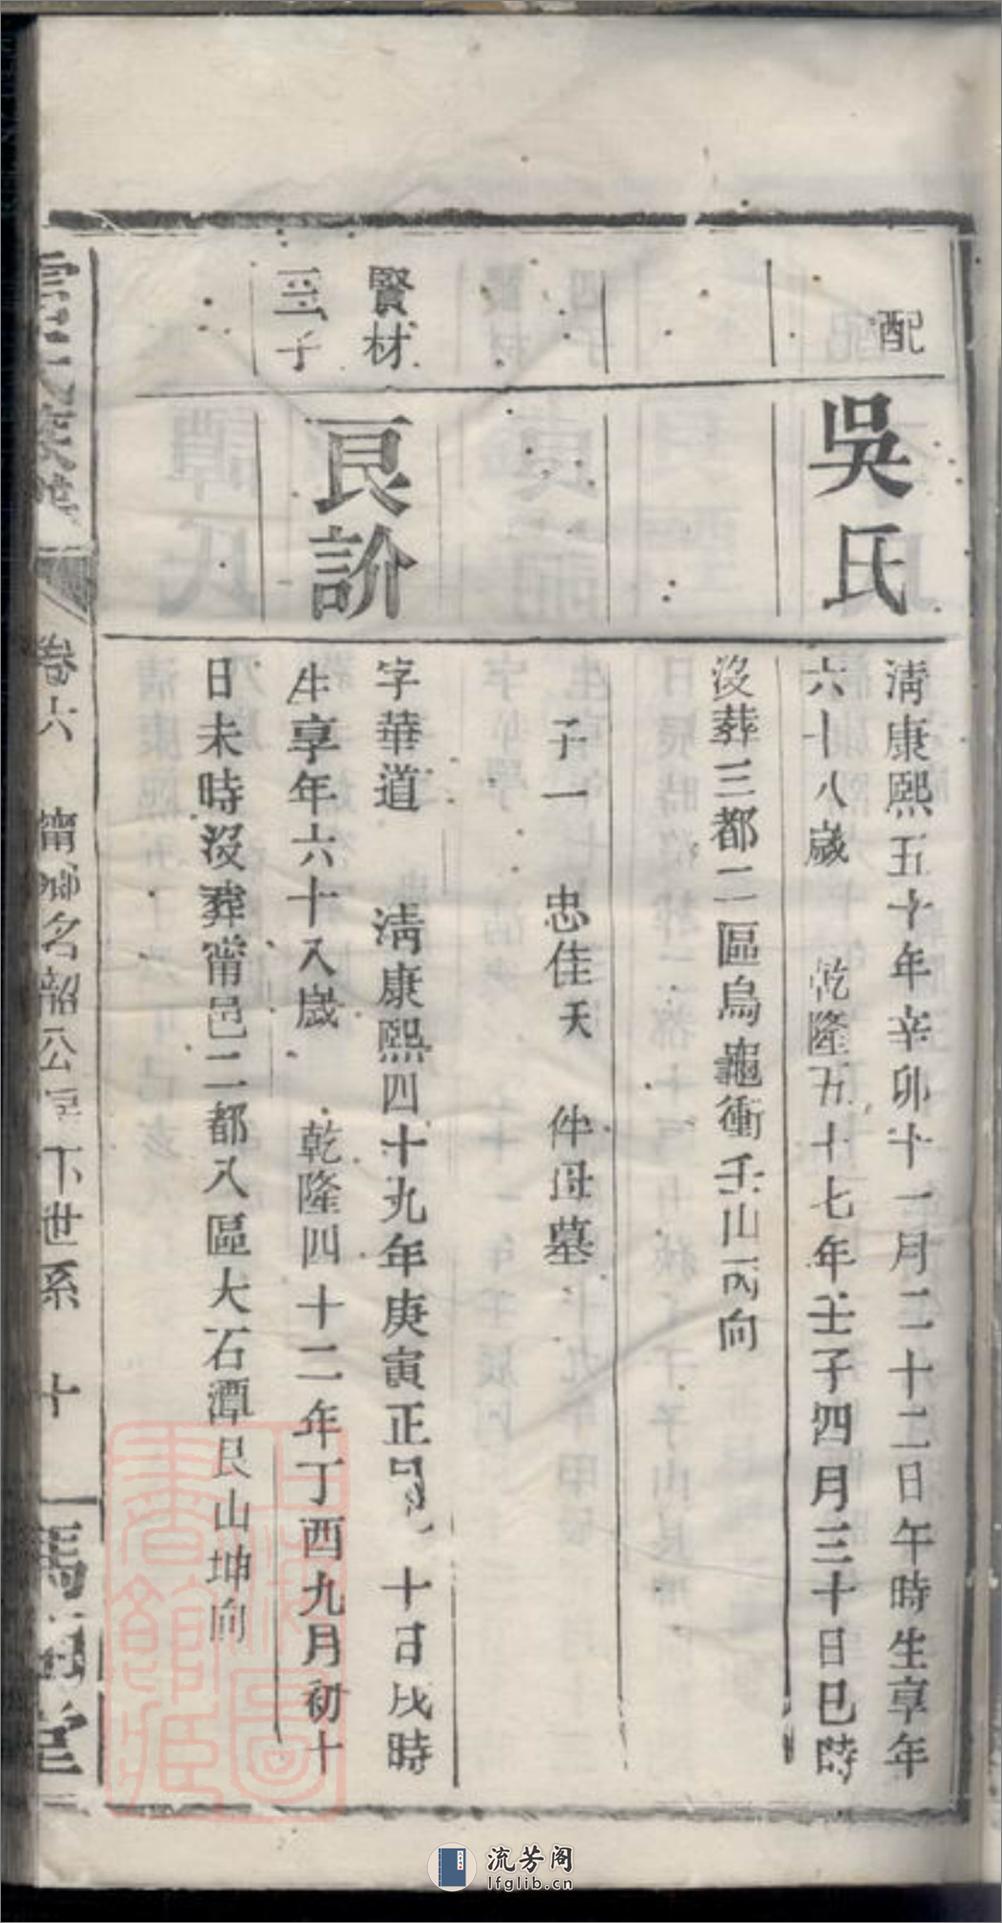 配
吳氏
淸康熙五十年辛卯十一月二十二日午時生享年
六十八歲 乾隆五十七年壬子四月三十日巳時
沒葬三都二區烏龜衝壬山丙向
子一 忠佳夭 件母墓
賢材
三子
良訜
字華道 淸康熙四十九年庚寅正月 十日戌時
生享年六十八歲 乾隆四十二年丁酉九月初十
日未時沒葬甯邑二都八區大石潭艮山坤向
卷六 甯鄉名韶公房下世系 十
流芳阁
lfglib.cn